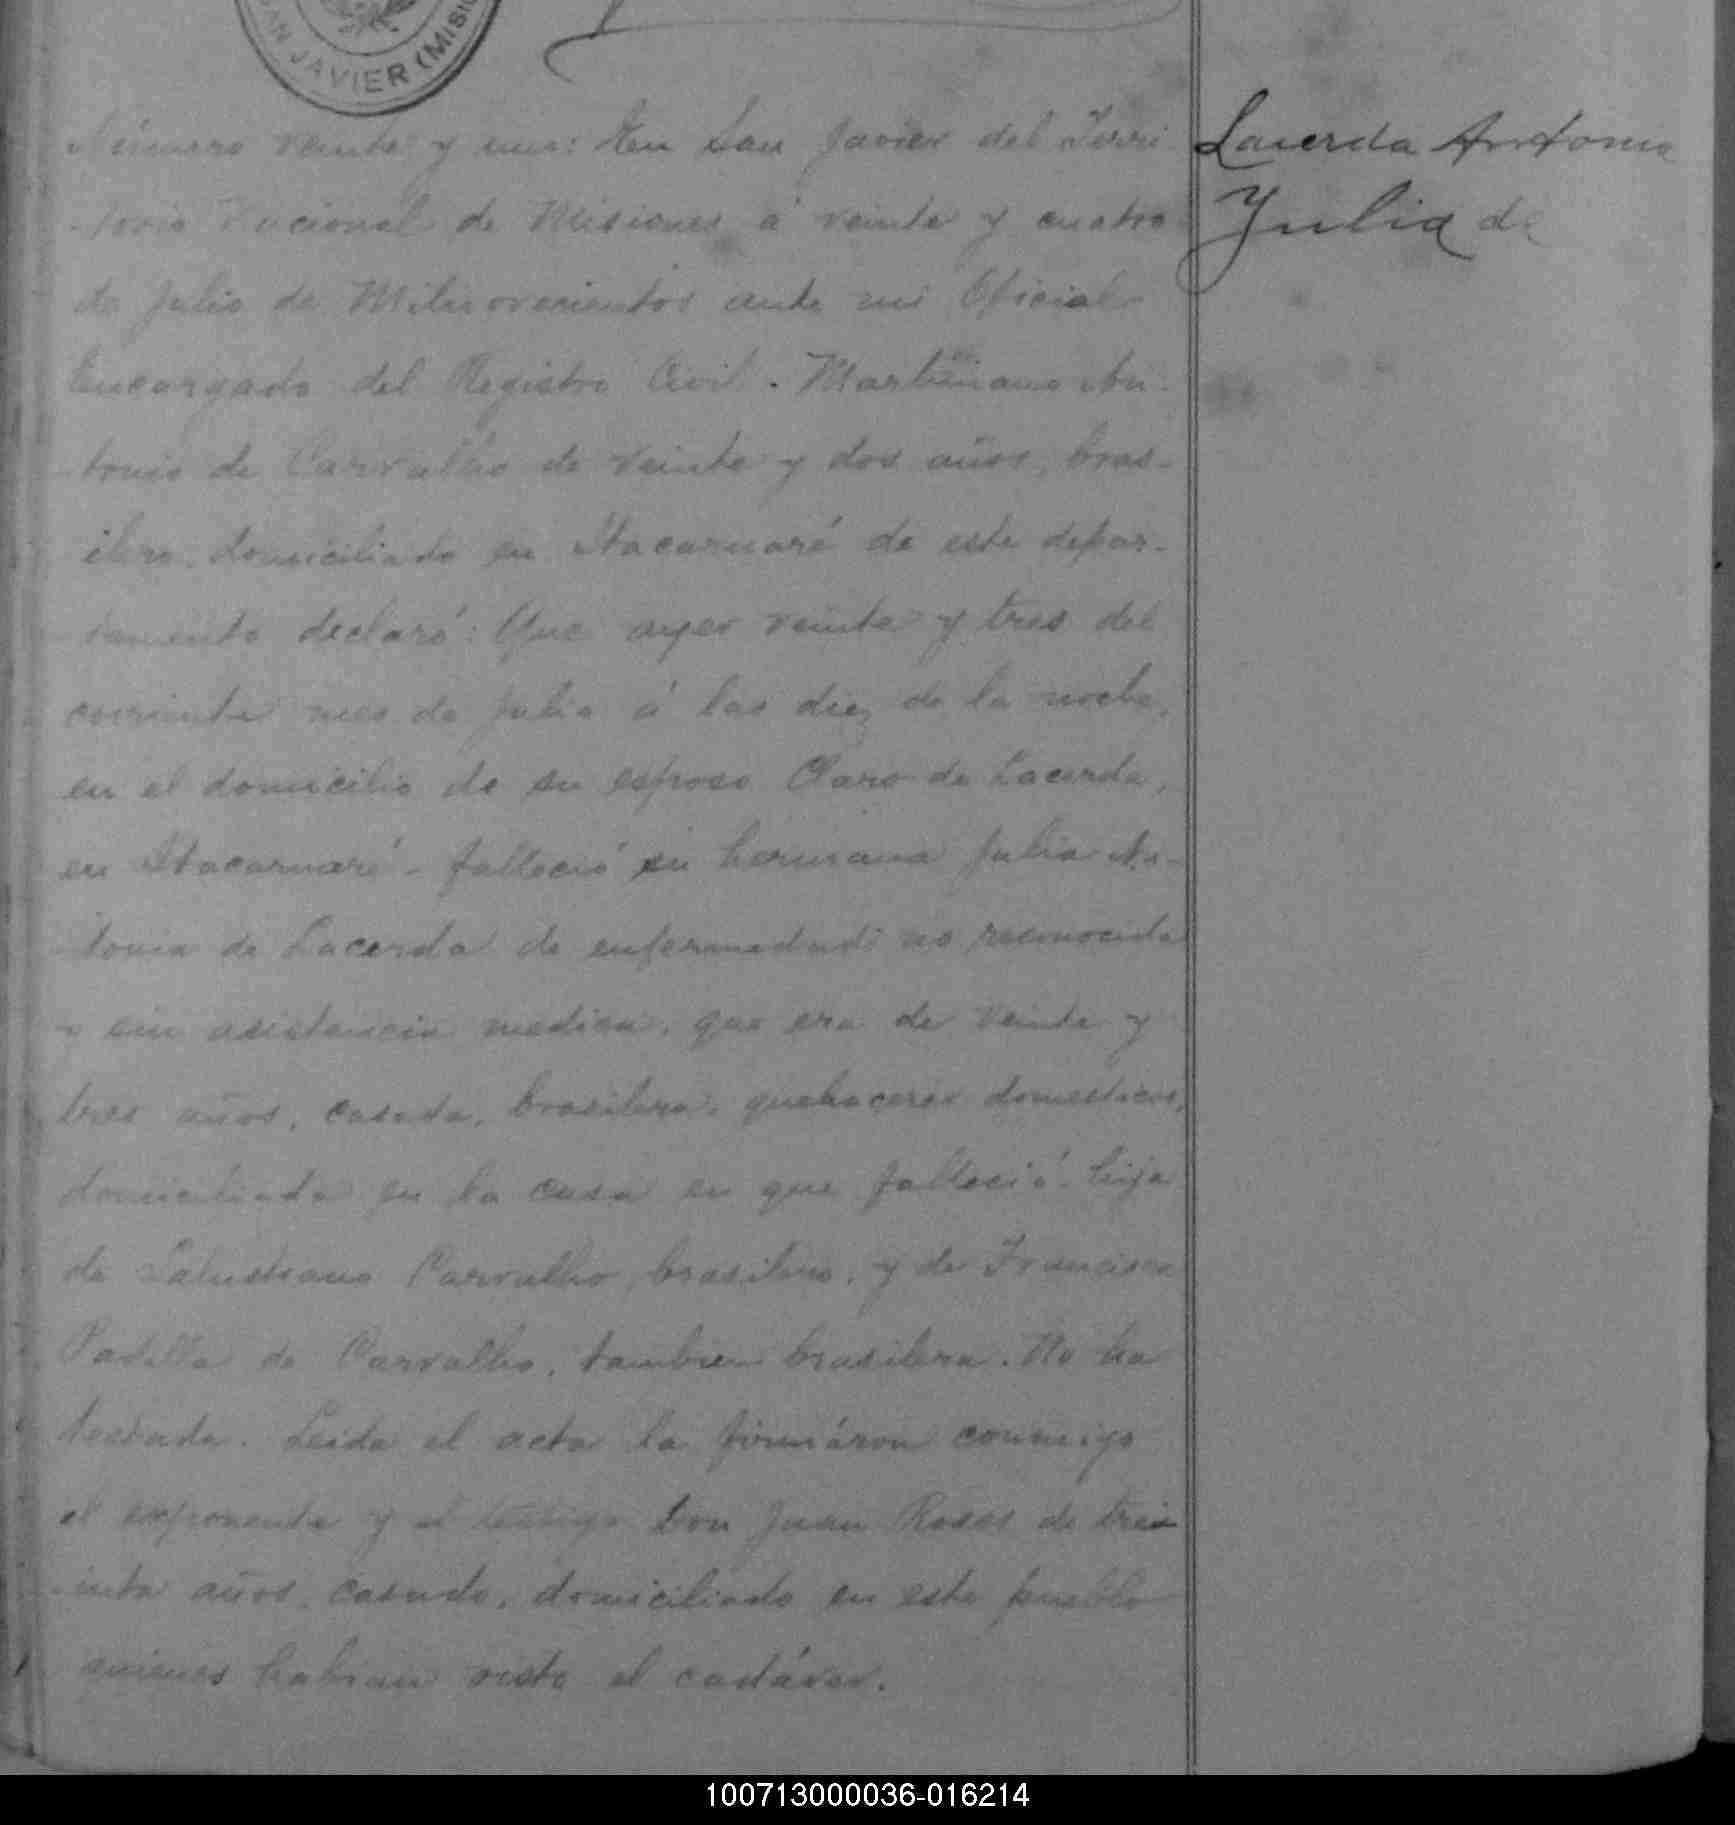 SAN JAVIER (MISIO
Número veinte y uno: En San Javier del Terri
-torio Nacional de Misiones á veinte y cuatro
de Julio de Milnovecientos ante mi Oficial
Encargado del Registro Civil. Martiniano An-
-tonio de Carvalho de veinte y dos años, bras-
ilero, domiciliado en Itacaruaré de este depar-
tamento declaró: Que ayer veinte y tres del
corriente mes de Julio á las diez de la noche,
en el domicilio de su esposo Claro de Lacerda,
en Itacaruaré - falleció su hermana Julia An-
-tonia de Lacerda de enfermedad no reconocida
y sin asistencia medica, que era de veinte y
tres años, casada, brasilera, quehaceres domesticos,
domiciliada en la casa en que falleció. hija
de Salustiano Carvalho, brasilero, y de Francisca
Padilla de Carvalho, tambien brasilera. No ha
testado. Leida el acta la firmáron conmigo
el exponente y el testigo Don Juan Rosas de trei
-inta años, casado, domiciliado en este pueblo
quienes habian visto el cadáver.
Lacerda Antonia
Julia de
100713000036-016214